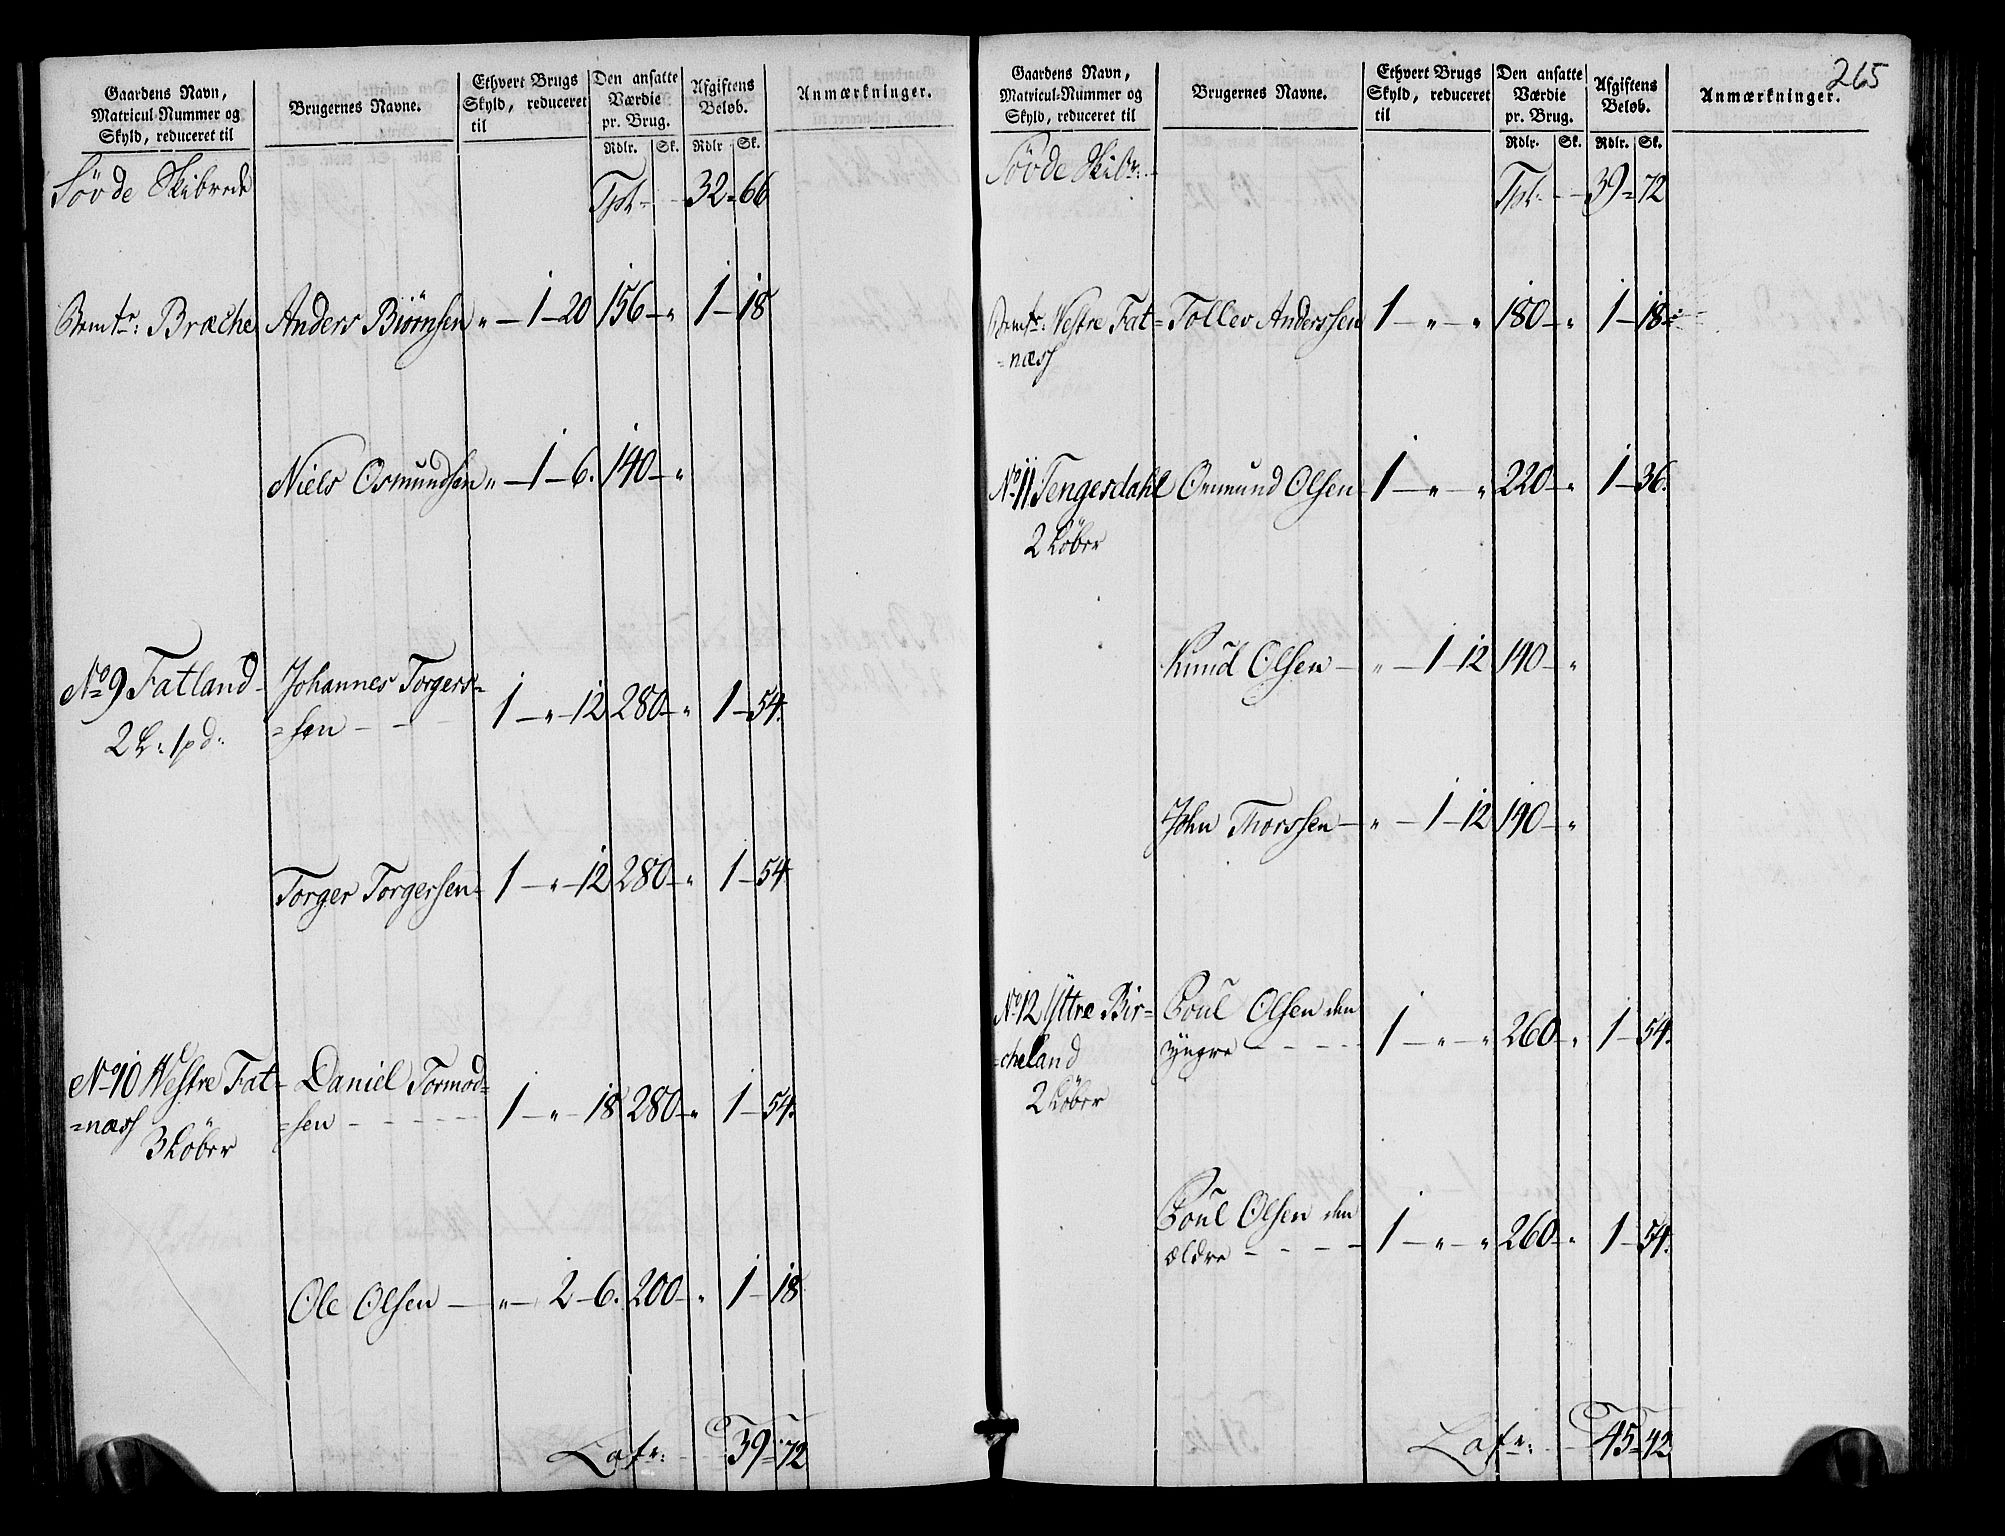 Gaardens Navn,
Matricul-Nummer og
Skyld, reduceret til
Brugernes Navne.
Ethvert Brugs
Skyld, reduceret
til
Den ansatte
Værdie
pr. Brug.
Rdlr. Sk.
Afgiftens
Beløb.
Rdlr Sk.
Anmærkninger.
Søvde Skibrede Tpt. 32 = 66
Bemtr: Bræche Anders Biørnsen " — 1 — 20 156 — " 1 — 18
Niels Osmundsen " — 1 — 6. 140 — "
No 9 Fatland Johannes Torgers= 1 — " — 12 280 — " 1 — 54.
2 L: 1 pd: =sen
Torger Torgersen 1 — " — 12 280 — " 1 — 54
No 10 Westre Fat= Daniel Tormod= 1 — " — 18 280 — " 1 — 54.
=næss =sen
3 Løber
Ole Olsen " — 2 — 6. 200 — " 1 — 18
Latr: 39 = 72
265
Gaardens Navn,
Matricul-Nummer og
Skyld, reduceret til
Brugernes Navne.
Ethvert Brugs
Skyld, reduceret
til
Den ansatte
Værdie
pr. Brug.
Rdlr. Sk.
Afgiftens
Beløb.
Rdlr. Sk.
Anmærkninger.
Søvde Skibr: Tpt. 39 = 72
Bemtr: Vestre Fat= Tollev Anderssen 1 — " — " 180 — " 1 — 18
=næss
No 11 Tengesdahl Omund Olsen 1 — " — " 220 — " 1 — 36.
2 Løber
Knud Olsen " — 1 — 12 140 — "
John Thorssen " — 1 — 12 140 — "
No 12 Yttre Bir= Poul Olsen den 1 — " — " 260 — " 1 — 54.
=cheland yngre
2 Løber
Poul Olsen den 1 — " — " 260 — " 1 — 54.
ældre
Latr: 45 = 42